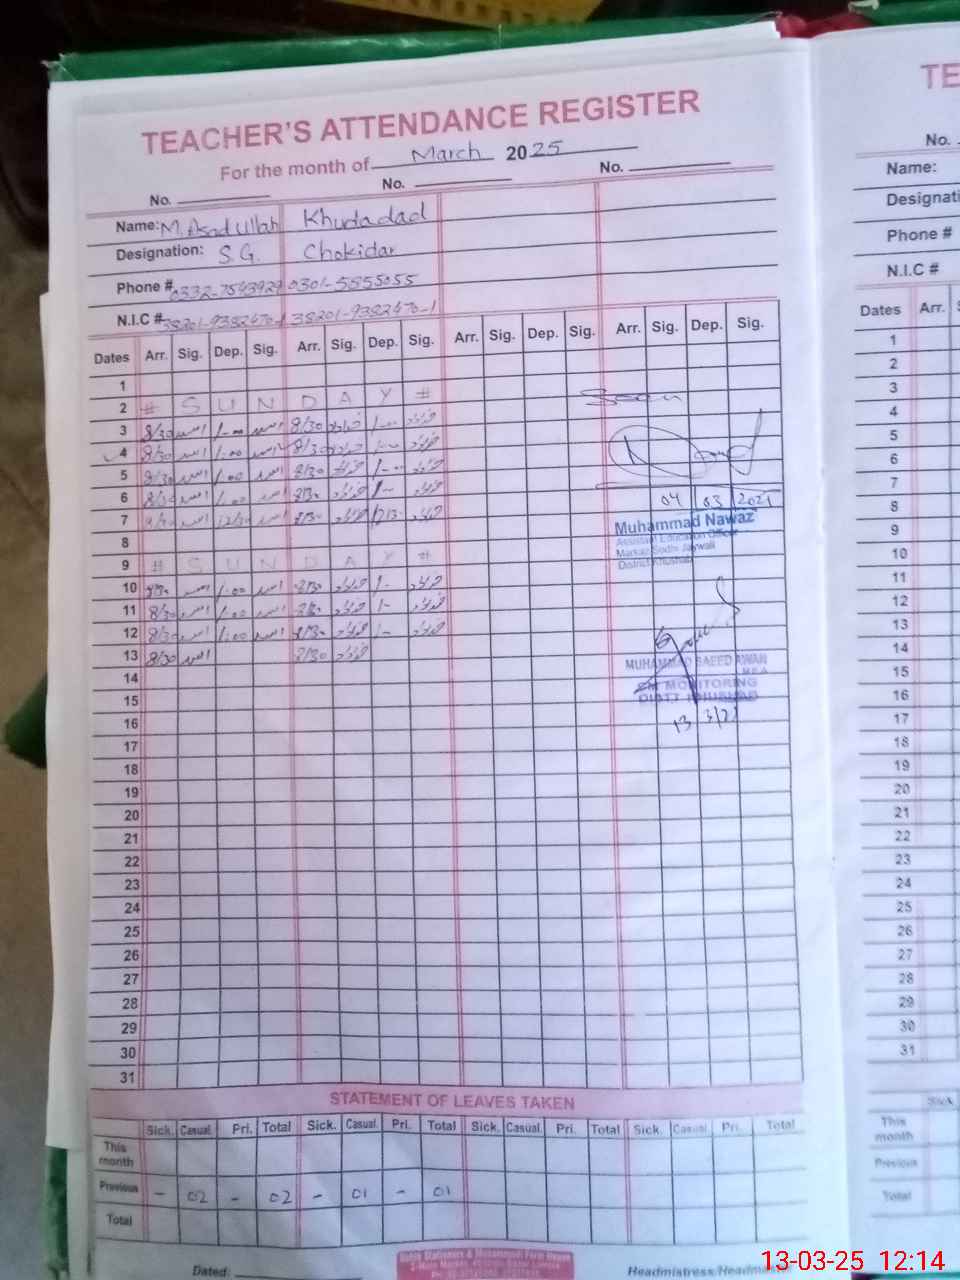 TEACHER'S ATTENDANCE REGISTER
For the month of March 2025
No. No. No.
Name: M. Asad Ullah Khudadad
Designation: S.G. Chokidar
Phone # 0332-7543929 0301-5555055
N.I.C # 38201-9382470-1 38201-9382470-1
Dates Arr. Sig. Dep. Sig. Arr. Sig. Dep. Sig. Arr. Sig. Dep. Sig. Arr. Sig. Dep. Sig.
1
2 # S U N D A Y # Seen
3 8/30 اسد 1-00 اسد 8/30 خداداد 1-00 خداداد
4 8/30 اسد 1:00 اسد 8/30 خداداد 1-00 خداداد
5 8/30 اسد 1:00 اسد 8/30 خداداد 1-- خداداد
6 8/30 اسد 1:00 اسد 8/30 خداداد 1- خداداد
04 03 2025
7 8/30 اسد 12/30 اسد 8/30 خداداد 12/30 خداداد
Muhammad Nawaz
Assistant Education Officer
Markaz Sodhi Jaywali
District Khushab
8
9 # S U N D A Y #
10 8/30 اسد 1:00 اسد 8/30 خداداد 1- خداداد
11 8/30 اسد 1:00 اسد 8/30 خداداد 1- خداداد
12 8/30 اسد 1:00 اسد 8/30 خداداد 1- خداداد
13 8/30 اسد 8/30 خداداد
MUHAMMAD SAEED AWAN
M.E.A
CM MONITORING
DISTT KHUSHAB
13 3/25
14
15
16
17
18
19
20
21
22
23
24
25
26
27
28
29
30
31
STATEMENT OF LEAVES TAKEN
Sick. Casual. Pri. Total Sick. Casual. Pri. Total Sick. Casual. Pri. Total Sick. Casual. Pri. Total
This month
Previous - 02 - 02 - 01 - 01
Total
Dated: Headmistress/Headmaster
TE
No.
Name:
Designati
Phone #
N.I.C #
Dates Arr. S
1
2
3
4
5
6
7
8
9
10
11
12
13
14
15
16
17
18
19
20
21
22
23
24
25
26
27
28
29
30
31
Sick
This month
Previous
Total
13-03-25 12:14